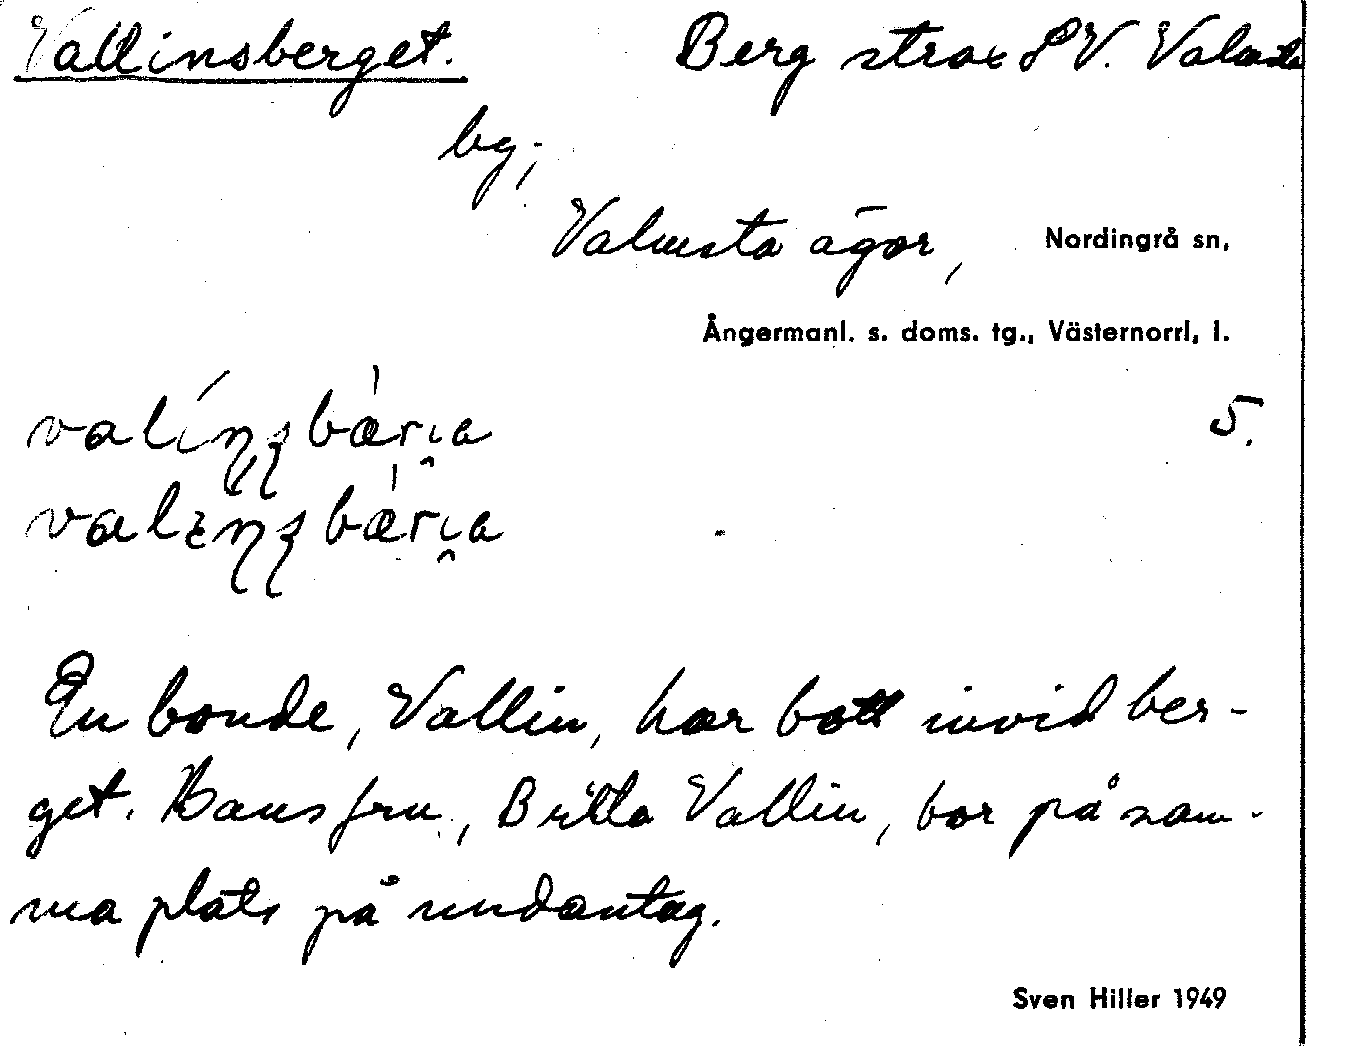 Vallinsberget. Berg strax SV. Valmsta
by;
Valmsta ägor, Nordingrå sn,
Ångermanl. s. doms. tg., Västernorrl. l.
5.
En bonde, Vallin, har bott invid ber-
get. Hans fru, Britta Vallin, bor på sam-
ma plats på undantag.
Sven Hiller 1949